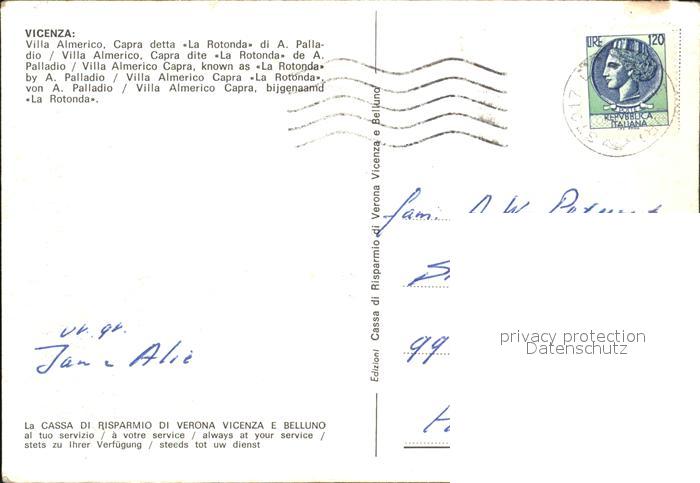 VICENZA:
Villa Almerico, Capra detta «La Rotonda» di A. Palla-
dio / Villa Almerico, Capra dite «La Rotonda» de A.
Palladio / Villa Almerico Capra, known as «La Rotonda»
by A. Palladio / Villa Almerico Capra «La Rotonda»,
von A. Palladio / Villa Almerico Capra, bijgenaamd
«La Rotonda».
LIRE 120
REPVBBLICA
ITALIANA
Edizioni Cassa di Risparmio di Verona Vicenza e Belluno
fam. A W
99
privacy protection
Datenschutz
vr. gr.
Jan - Alie
La CASSA DI RISPARMIO DI VERONA VICENZA E BELLUNO
al tuo servizio / à votre service / always at your service /
stets zu Ihrer Verfügung / steeds tot uw dienst